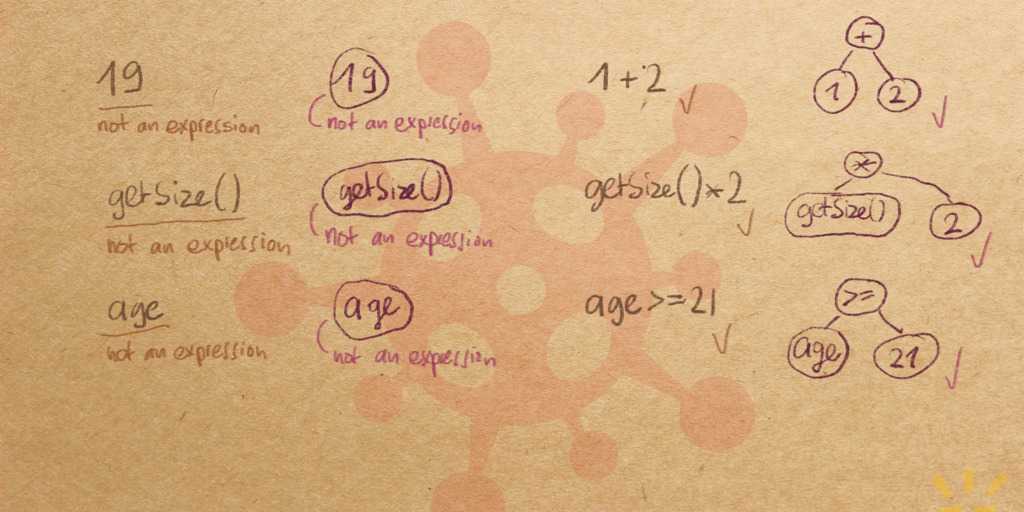 19
not an expression
19
not an expression
1+2
+
1
2
getSize()
not an expression
getSize()
not an expression
getSize()*2
*
getSize()
2
age
not an expression
age
not an expression
age>=21
>=
age
21